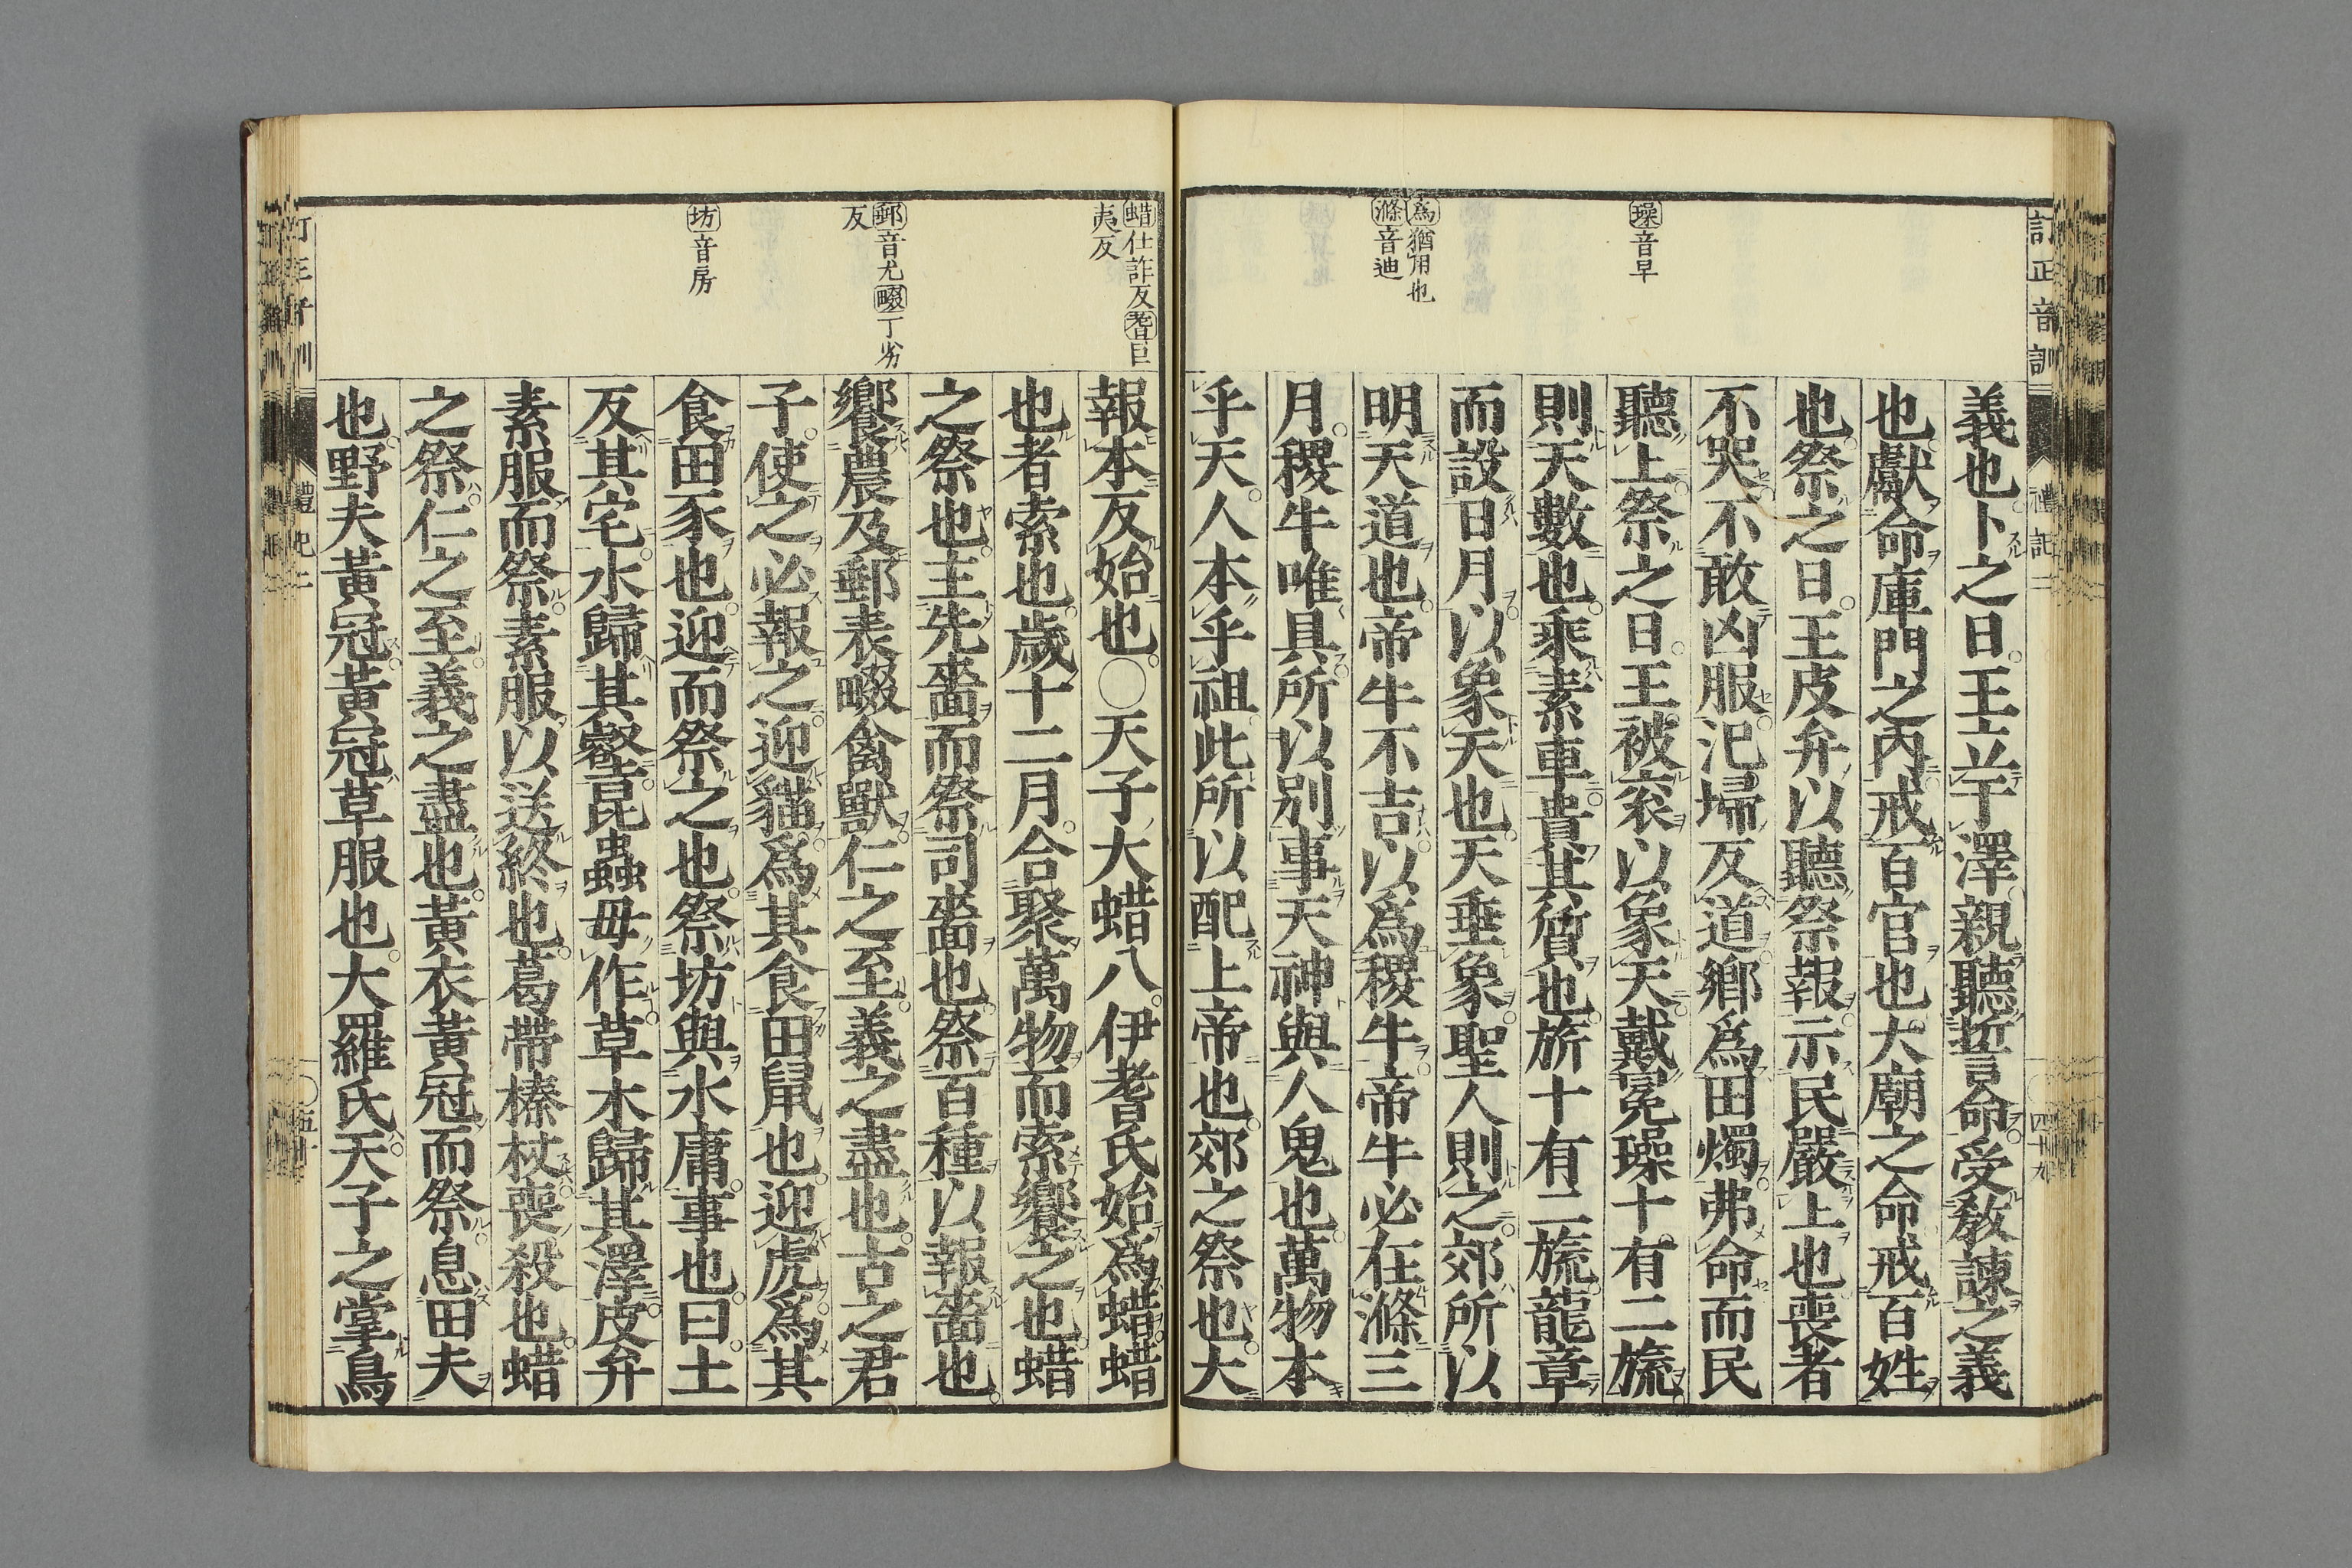 訂正音訓
禮記二
四十九
璪音早
爲猶用也
滌音迪
義也卜之日王立于澤親聽誓命受敎諫之義
也獻命庫門之內戒百官也大廟之命戒百姓
也祭之日王皮弁以聽祭報示民嚴上也喪者
不哭不敢凶服汜埽反道鄕爲田燭弗命而民
聽上祭之日王被衮以象天戴冕璪十有二旒
則天數也乘素車貴其質也旂十有二旒龍章
而設日月以象天也天垂象聖人則之郊所以
明天道也帝牛不吉以爲稷牛帝牛必在滌三
月稷牛唯具所以別事天神與人鬼也萬物本
乎天人本乎祖此所以配上帝也郊之祭也大
蜡仕詐反耆巨
夷反
郵音尤畷丁劣
反
坊音房
報本反始也○天子大蜡八伊耆氏始爲蜡蜡
也者索也歲十二月合聚萬物而索饗之也蜡
之祭也主先嗇而祭司嗇也祭百種以報嗇也
饗農及郵表畷禽獸仁之至義之盡也古之君
子使之必報之迎貓爲其食田鼠也迎虎爲其
食田豕也迎而祭之也祭坊與水庸事也曰土
反其宅水歸其壑昆蟲毋作草木歸其澤皮弁
素服而祭素服以送終也葛帶榛杖喪殺也蜡
之祭仁之至義之盡也黃衣黃冠而祭息田夫
也野夫黃冠黃冠草服也大羅氏天子之掌鳥
禮記二